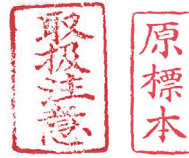 取扱注意
原標本